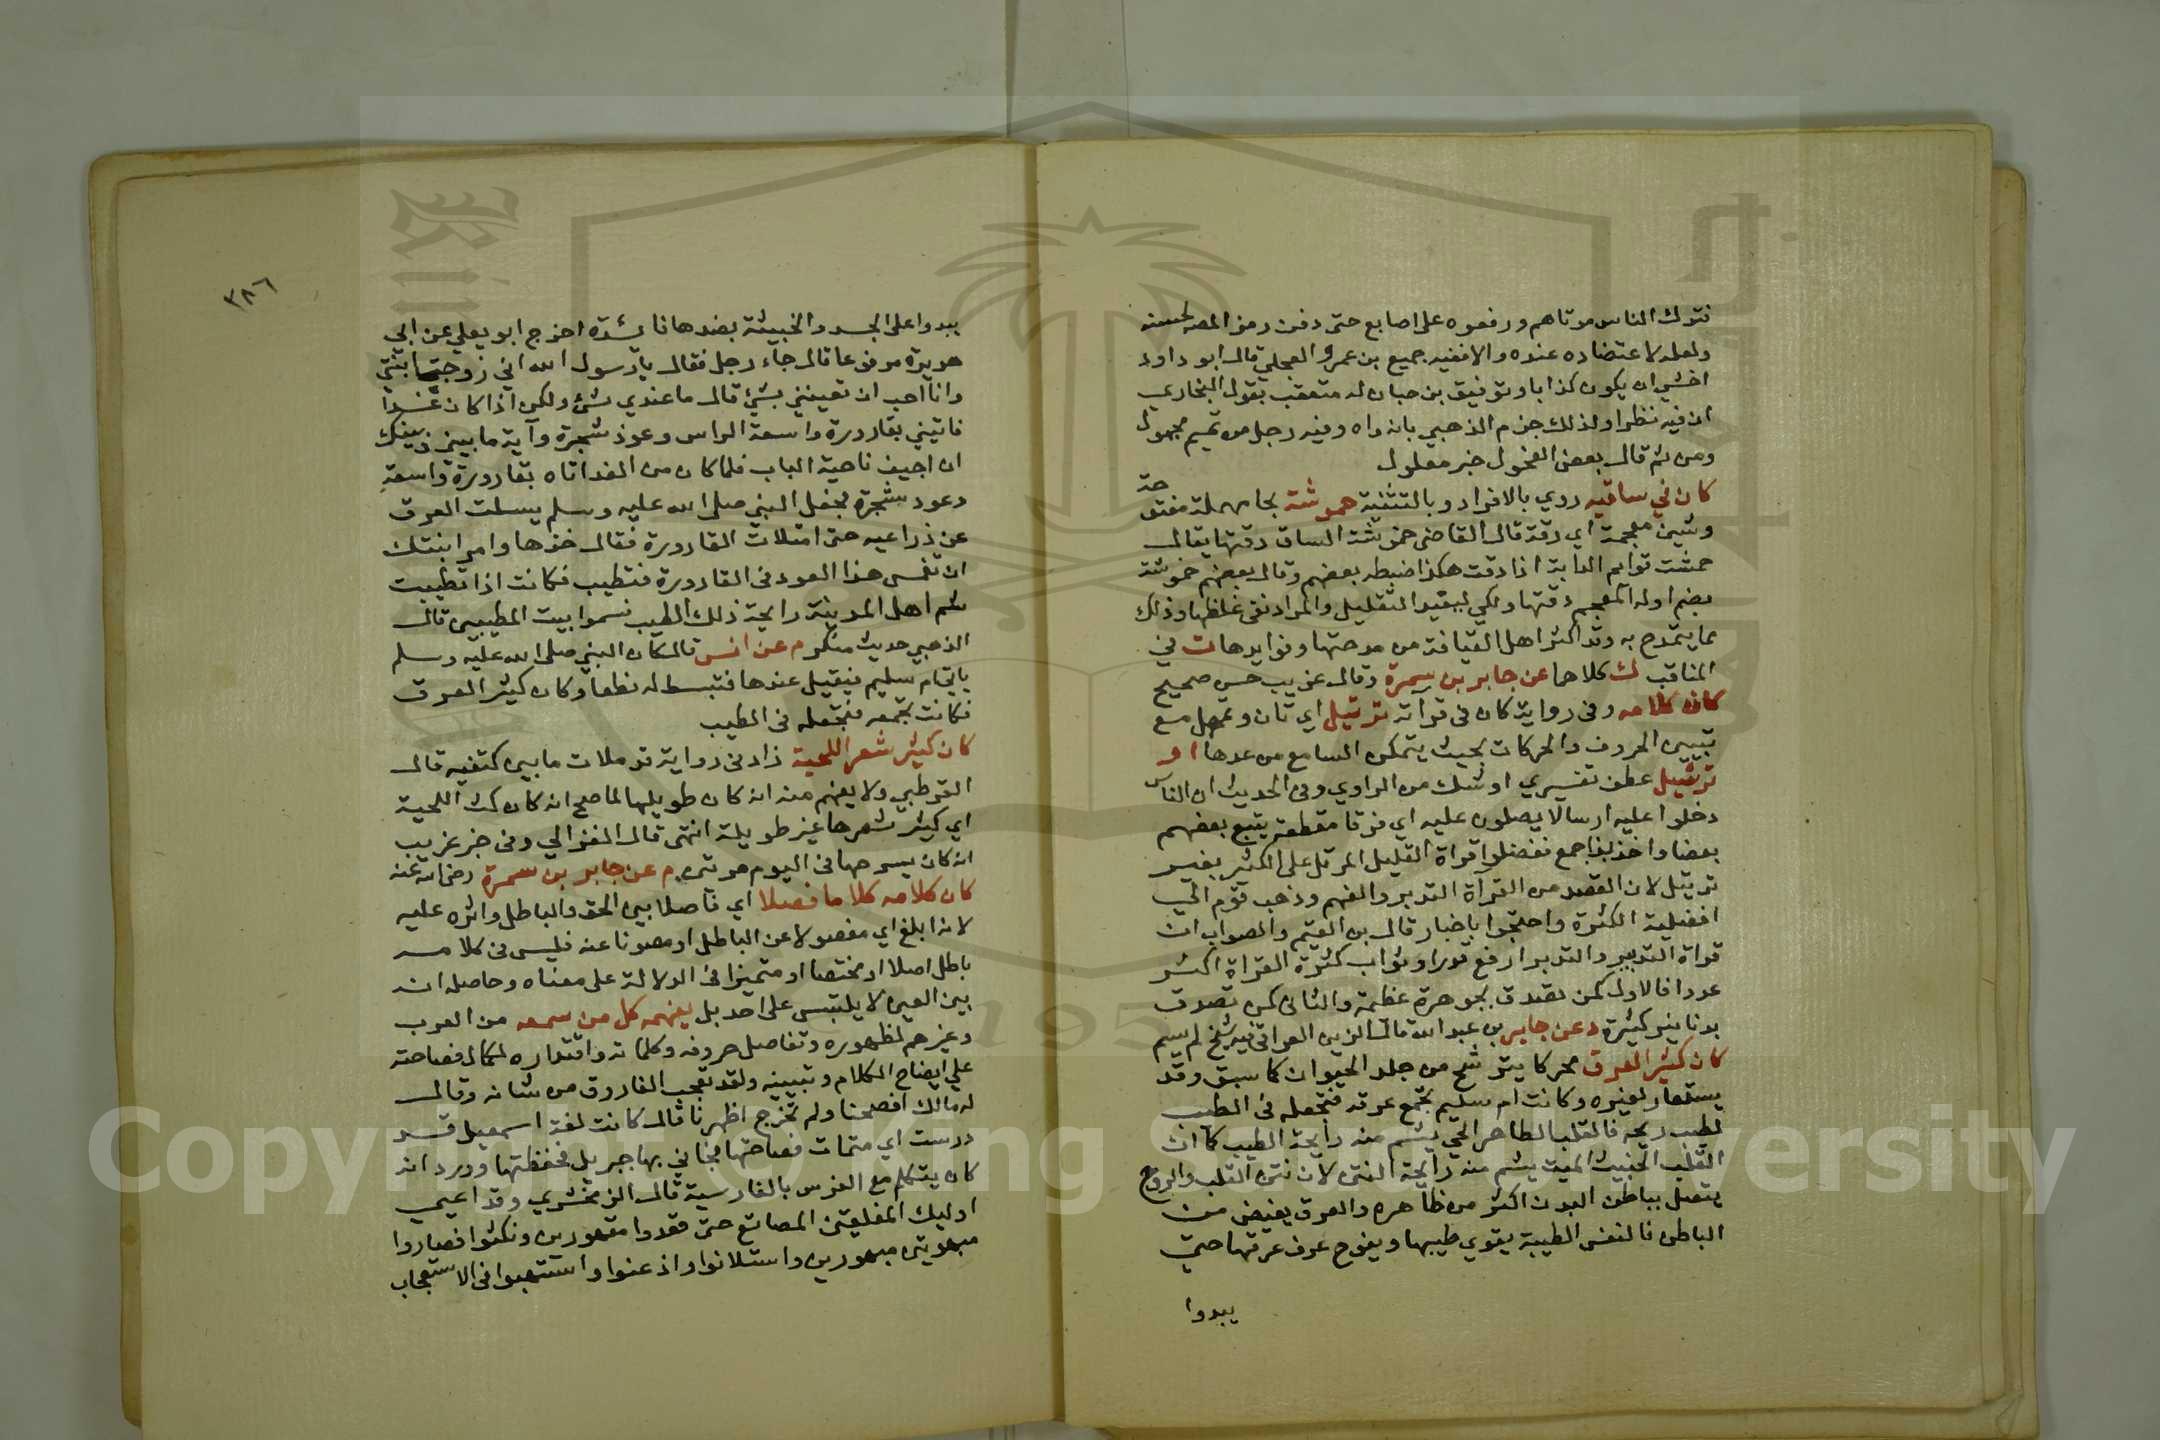 نتوك الناس موتاهم ورفعوه على اصابع حتى دفن رمز المصه لحسنه
ولعله لاعتضاده عنده والا ففيه جميع بن عمرو العجلي قال ابو داود
اخشى ان يكون كذابا وتوفيق بن حبان له متعقب بقول البخاري
ان فيه نظرا ولذلك جزم الذهبي بانه واه وفيه رجل من تميم مجهول
ومن ثم قال بعض الفحول خبر معلول
كان في ساقيه روي بالافراد وبالتثنية حموشة بحا مهملة مفتوحة
وشين معجمة اي رقة قال القاضي حموشة الساق دقتها يقال
حمشت قوايم الدابة اذا دقت هكذا ضبطه بعضهم وقال بعضهم خموشة
بضم اوله المعجم دقتها ولكي ليفيد التقليل والمراد نفي غلظها وذلك
مما يتمدح به وقد اكثر اهل القيافة من مدحتها وفوايدها ت في
المناقب ك كلاهما عن جابر بن سمرة وقال غريب حسن صحيح
كان كلامه وفي رواية كان في قراته ترتيل اي تان وتمهل مع
تبيين الحروف والحركات بحيث يتمكن السامع من عدها او
ترسيل عطف تفسيري او شك من الراوي وفي الحديث ان الناس
دخلوا عليه ارسالا يصلون عليه اي فرقا مقطعة يتبع بعضهم
بعضا واخذ بذا جمع ففضلوا قراة القليل المرتل على الكثير بغير
ترتيل لان القصد من القراة التدبر والفهم وذهب قوم الى
افضلية الكثرة واحتجوا باخبار قال بن القيم والصواب ان
قراة التدبير والتدبر ارفع قدرا وثواب كثرة القراة اكثر
عددا فالاول كمن تصدق بجوهرة عظيمة والثاني كمن تصدق
بدنانير كثيرة د عن جابر بن عبد الله قال الزين العراقي فيه شيخ لم يسم
كان كثير العرق محركا يترشح من جلد الحيوان كما سبق وقد
يستعار لغيره وكانت ام سليم تجمع عرقه فتجعله في الطيب
لطيب ريحه فالقلب الطاهر الحي يشم منه رايحة الطيب كما ان
القلب الخبيث الميت يشم منه رايحة النتن لان نتن القلب والروح
يتصل بباطن البدن اكثر من ظاهره والعرق يفيض من
الباطن فالنفس الطيبة يقوي طيبها ويفوح عرف عرقها حتى
يبدوا
٣٨٦
يبدوا على الجسد والخبيثة بضدها فائدة اخرج ابو يعلي عن ابي
هريرة مرفوعا قال جاء رجل فقال يا رسول الله اني زوجت ابنتي
وانا احب ان تعينني بشئ قال ما عندي شئ ولكن اذا كان غدا
فاتيني بقارورة واسعة الراس وعود شجرة وآية ما بيني وبينك
ان اجيف ناحية الباب فلما كان من الغد اتاه بقارورة واسعة
وعود شجرة فجعل النبي صلى الله عليه وسلم يسلت العرق
عن ذراعيه حتى امتلات القارورة فقال خذها وامر ابنتك
ان تغمس هذا العود في القارورة فتطيب فكانت اذا تطيبت
شم اهل المدينة رايحة ذلك الطيب فسموا بيت المطيبين قال
الذهبي حديث منكر م عن انس قال كان النبي صلى الله عليه وسلم
ياتي ام سليم فيقيل عندها فتبسط له نطعا وكان كثير العرق
فكانت تجمعه فتجعله في الطيب
كان كثير شعر اللحية زاد في رواية قد ملات ما بين كتفيه قال
القرطبي ولا يفهم منه انه كان طويلها لما صح انه كان كث اللحية
اي كثير شعرها غير طويلة انتهى قال الغزالي وفي خبر غريب
انه كان يسرحها في اليوم مرتين م عن جابر بن سمرة رضي الله عنه
كان كلامه كلاما فصلا اي فاصلا بين الحق والباطل واثره عليه
لانه ابلغ اي مفصولا عن الباطل او مصونا عنه فليس في كلامه
باطل اصلا او مختصا او متميزا في الدلالة على معناه وحاصله انه
بين المعنى لا يلتبس على احد بل يفهمه كل من سمعه من العرب
وغيرهم لظهوره وتفاصل حروفه وكلماته واقتداره لكمال فصاحته
على ايضاح الكلام وتبيينه ولقد تعجب الفاروق من شانه وقال
له مالك افصحنا ولم تخرج من اظهرنا قال كانت لغة اسمعيل قد
درست اي متمات فصاحتها فجاني بها جبريل فحفظتها وورد انه
كان يتكلم مع الفرس بالفارسية قال الزمخشري وقد اعيى
اوليك المفلقين المصاقع حتى قعدوا مقهورين ونكلوا فصاروا
مبهوتين مبهورين واستلانوا واذعنوا واستهبوا في الاستعجاب